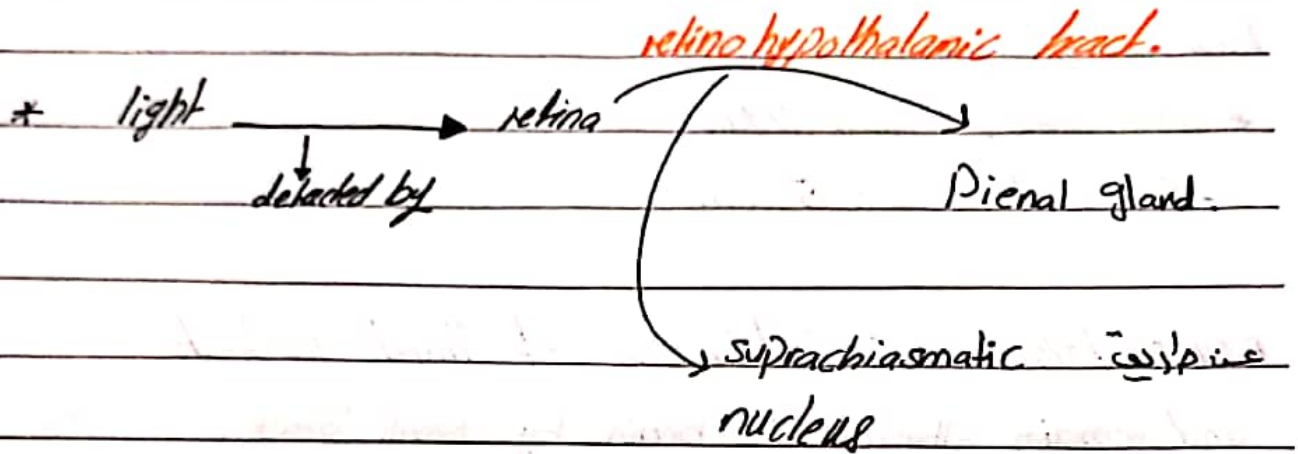 retinohypothalamic tract.
* light retina
detected by Pienal gland.
suprachiasmatic
nucleus